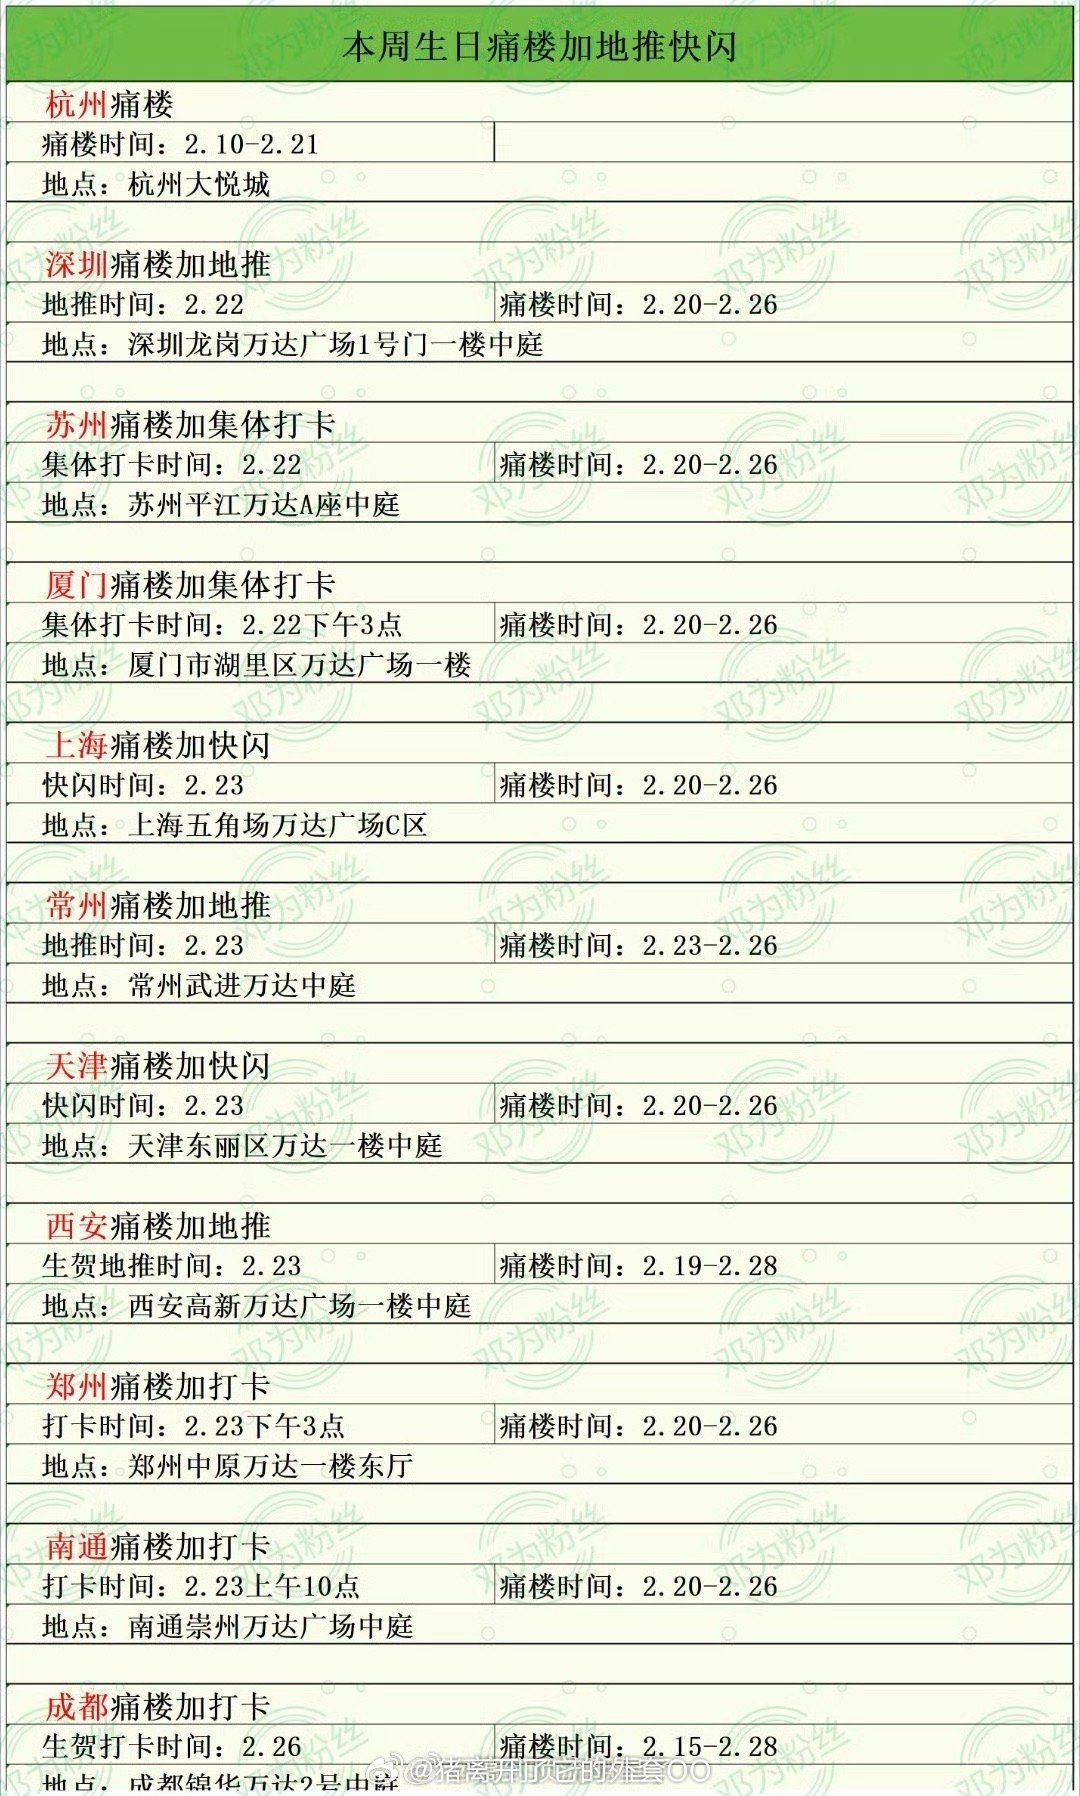 本周生日痛楼加地推快闪
杭州痛楼
痛楼时间：2.10-2.21
地点：杭州大悦城
深圳痛楼加地推
地推时间：2.22 痛楼时间：2.20-2.26
地点：深圳龙岗万达广场1号门一楼中庭
苏州痛楼加集体打卡
集体打卡时间：2.22 痛楼时间：2.20-2.26
地点：苏州平江万达A座中庭
厦门痛楼加集体打卡
集体打卡时间：2.22下午3点 痛楼时间：2.20-2.26
地点：厦门市湖里区万达广场一楼
上海痛楼加快闪
快闪时间：2.23 痛楼时间：2.20-2.26
地点：上海五角场万达广场C区
常州痛楼加地推
地推时间：2.23 痛楼时间：2.23-2.26
地点：常州武进万达中庭
天津痛楼加快闪
快闪时间：2.23 痛楼时间：2.20-2.26
地点：天津东丽区万达一楼中庭
西安痛楼加地推
生贺地推时间：2.23 痛楼时间：2.19-2.28
地点：西安高新万达广场一楼中庭
郑州痛楼加打卡
打卡时间：2.23下午3点 痛楼时间：2.20-2.26
地点：郑州中原万达一楼东厅
南通痛楼加打卡
打卡时间：2.23上午10点 痛楼时间：2.20-2.26
地点：南通崇州万达广场中庭
成都痛楼加打卡
生贺打卡时间：2.26 痛楼时间：2.15-2.28
地点：成都锦华万达2号中庭
邓为粉丝